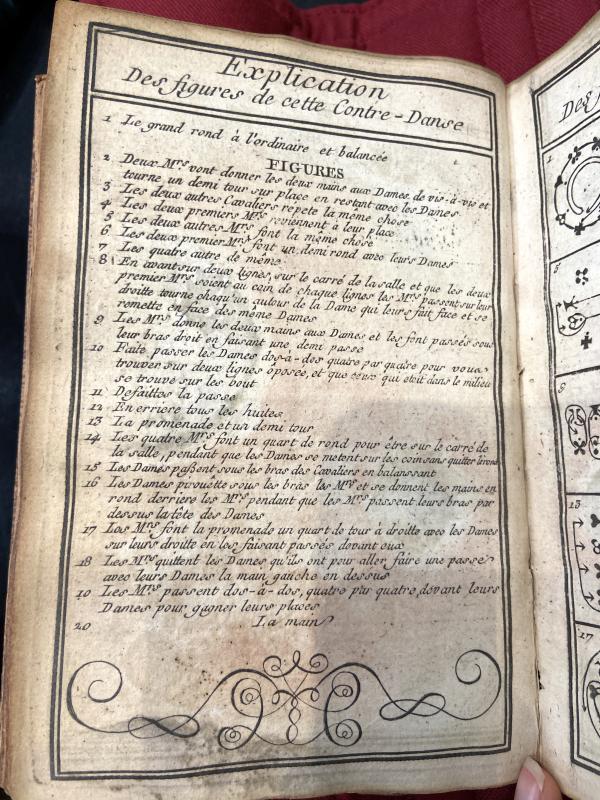 Explication
Des figures de cette Contre-Danse
1 Le grand rond à l'ordinaire et balancée
FIGURES
2 Deux Mrs vont donner les deux mains aux Dames de vis-à-vis et
tourne un demi tour sur place en restant avec les Dames
3 Les deux autres Cavaliers repete la même chose
4 Les deux premiers Mrs reviennent à leur place
5 Les deux autres Mrs font la même chose
6 Les deux premier Mrs font un demi rond avec leurs Dames
7 Les quatre autre de même
8 En avant sur deux lignes, sur le carré de la salle et que les deux
premier Mrs soient au coin de chaque lignes les Mrs passent sur leur
droitte tourne chaqu'un autour de la Dame qui leurs fait face et se
remette en face des même Dames
9 Les Mrs donne les deux mains aux Dames et les font passés sous
leur bras droit en faisant une demi passe
10 Faite passer les Dames dos-à-dos quatre par quatre pour vous
trouver sur deux lignes oposée, et que ceux qui étoit dans le milieu
se trouve sur les bout
11 Defaittes la passe
12 En erriere tous les huites
13 La promenade et un demi tour
14 Les quatre Mrs font un quart de rond pour être sur le carré de
la salle, pendant que les Dames se metent sur les coin sans quitter
15 Les Dames paßent sous les bras des Cavaliers en balanssant
16 Les Dames pivouëtte sous les bras les Mrs et se donnent les mains en
rond derriere les Mrs pendant que les Mrs passent leurs bras par
dessus la tête des Dames
17 Los Mrs font la promenade un quart de tour à droitte avec les Dames
sur leurs droitte en les faisant passés devant eux
18 Les Mrs quittent les Dames qu'ils ont pour aller faire une passe
avec leurs Dames la main gauche en dessus
19 Les Mrs passent dos-à-dos, quatre par quatre, devant leurs
Dames pour gagner leurs places
20 La main
Des
1
5
9
13
17